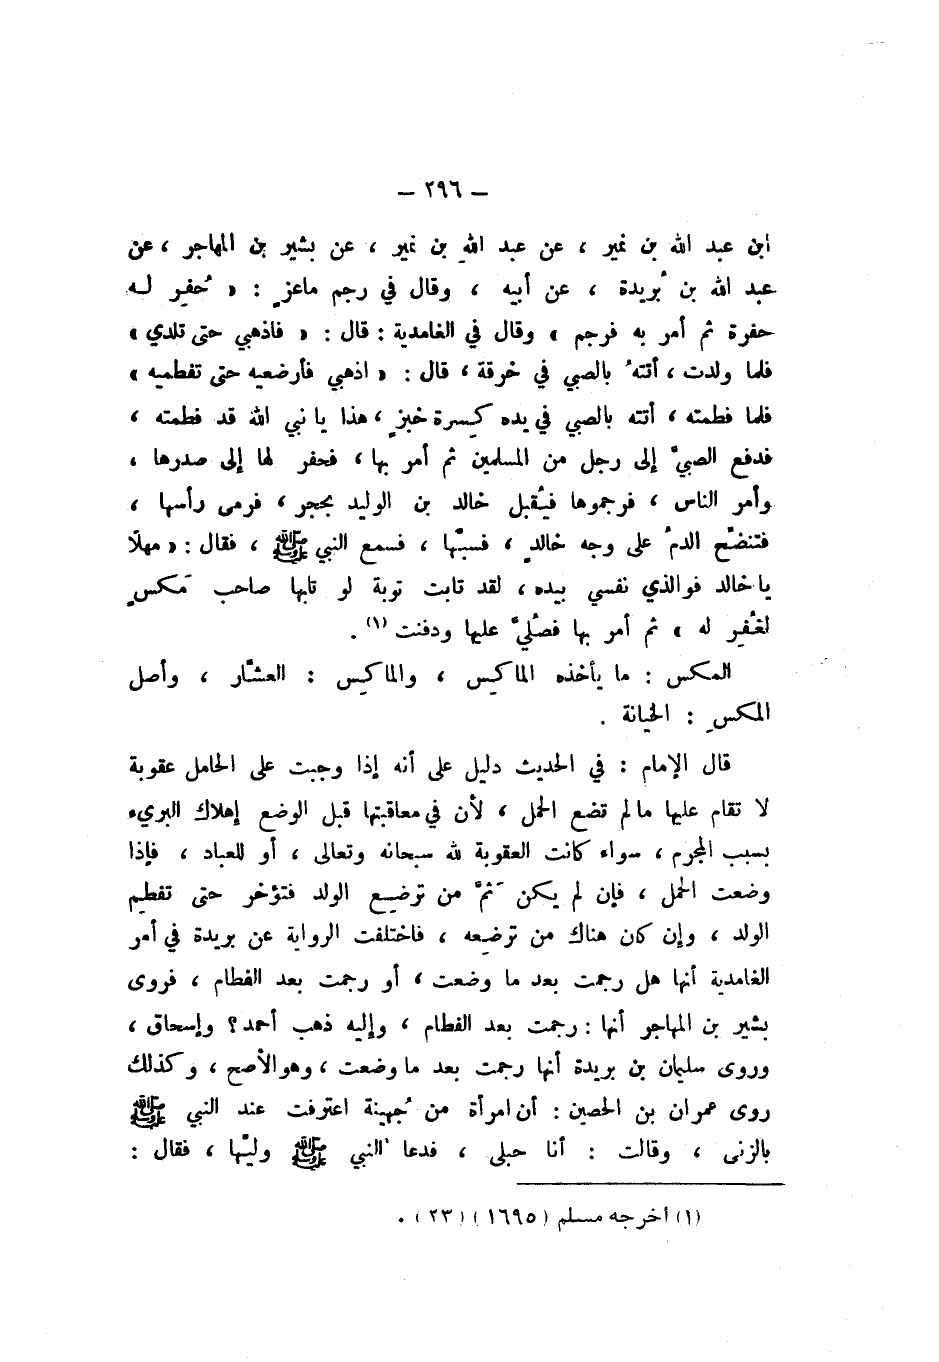 — ٢٩٦ —
ابن عبد الله بن نمير ، عن عبد اللهِ بن نمير ، عن بشير بن المهاجر ، عن
عبد الله بن بُريدة ، عن أبيه ، وقال في رجم ماعزٍ : « حُفِر لـه
حفرة ثم أمر به فرجم » وقال في الغامدية : قال : « فاذهبي حتى تلدي »
فلما ولدت ، أتتهُ بالصبي في خرقة ، قال : « اذهبي فأرضعيه حتى تفطميه »
فلما فطمته ، أتته بالصبي في يده كِسرة خبزٍ ، هذا يا نبي الله قد فطمته ،
فدفع الصبيَّ إلى رجل من المسلمين ثم أمر بها ، فحفر لها إلى صدرها ،
وأمر الناس ، فرجموها فيُقبل خالد بن الوليد بحجر ، فرمى رأسها ،
فتنضَّح الدمُ على وجه خالدٍ ، فسبَّها ، فسمع النبي ﷺ ، فقال : « مهلًا
يا خالد فوالذي نفسي بيده ، لقد تابت توبة لو تابها صاحب مَكسٍ
لغُفِر له » ثم أمر بها فصُلِّيَ عليها ودفنت (١) .
المكس : ما يأخذه الماكِس ، والماكِس : العشَّار ، وأصل
المكسِ : الخيانة .
قال الإمام : في الحديث دليل على أنه إذا وجبت على الحامل عقوبة
لا تقام عليها ما لم تضع الحمل ، لأن في معاقبتها قبل الوضع إهلاك البريء
بسبب المجرم ، سواء كانت العقوبة لله سبحانه وتعالى ، أو للعباد ، فإذا
وضعت الحمل ، فإن لم يكن ثَمَّ من ترضِع الولد فتؤخر حتى تفطم
الولد ، وإن كان هناك من ترضِعه ، فاختلفت الرواية عن بريدة في أمر
الغامدية أنها هل رجمت بعد ما وضعت ، أو رجمت بعد الفطام ، فروى
بشير بن المهاجر أنها : رجمت بعد الفطام ، وإليه ذهب أحمد؟ وإسحاق ،
وروى سليمان بن بريدة أنها رجمت بعد ما وضعت ، وهو الأصح ، وكذلك
روى عمران بن الحصين : أن امرأة من جُهينة اعترفت عند النبي ﷺ
بالزنى ، وقالت : أنا حبلى ، فدعا النبي ﷺ وليَّها ، فقال :
(١) أخرجه مسلم (١٦٩٥) (٢٣) .